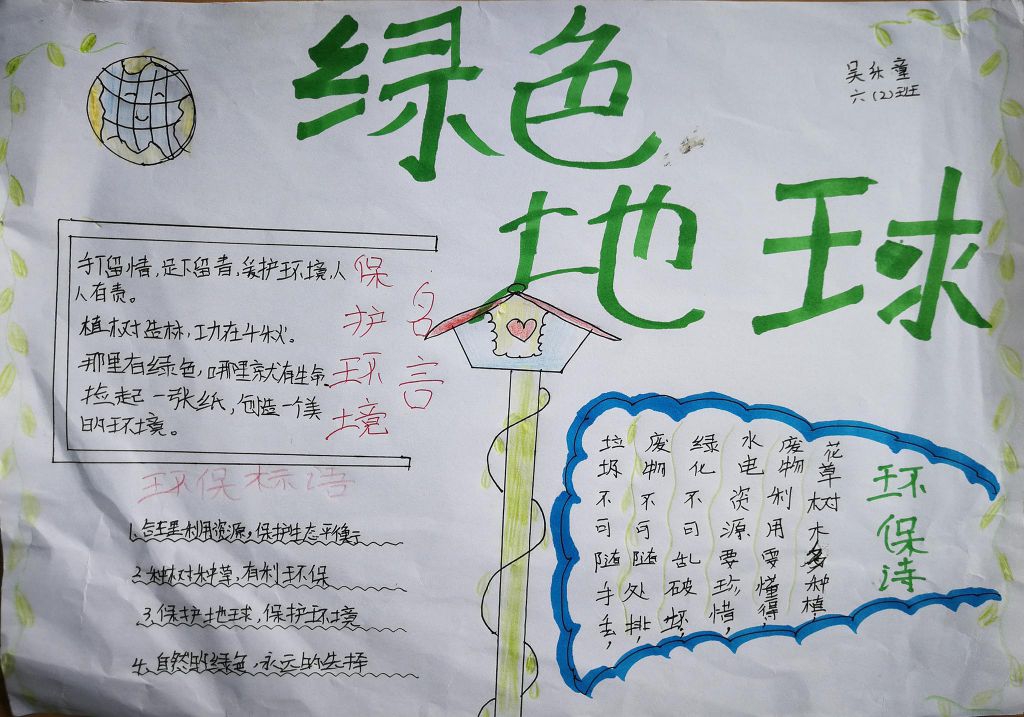 绿色
地球
吴乐童
六(2)班
手下留情,足下留青,爱护环境,人
人有责。
植树造林,功在千秋。
那里有绿色,哪里就有生命
捡起一张纸,创造一个美
的环境。
保护环境
名言
环保标语
1.合理利用资源,保护生态平衡
2.种树种草,有利环保
3.保护地球,保护环境
4.自然的绿色,永远的选择
环保诗
花草树木多种植,
废物利用要懂得,
水电资源要珍惜,
绿化不可乱破坏,
废物不可随处排,
垃圾不可随手丢,